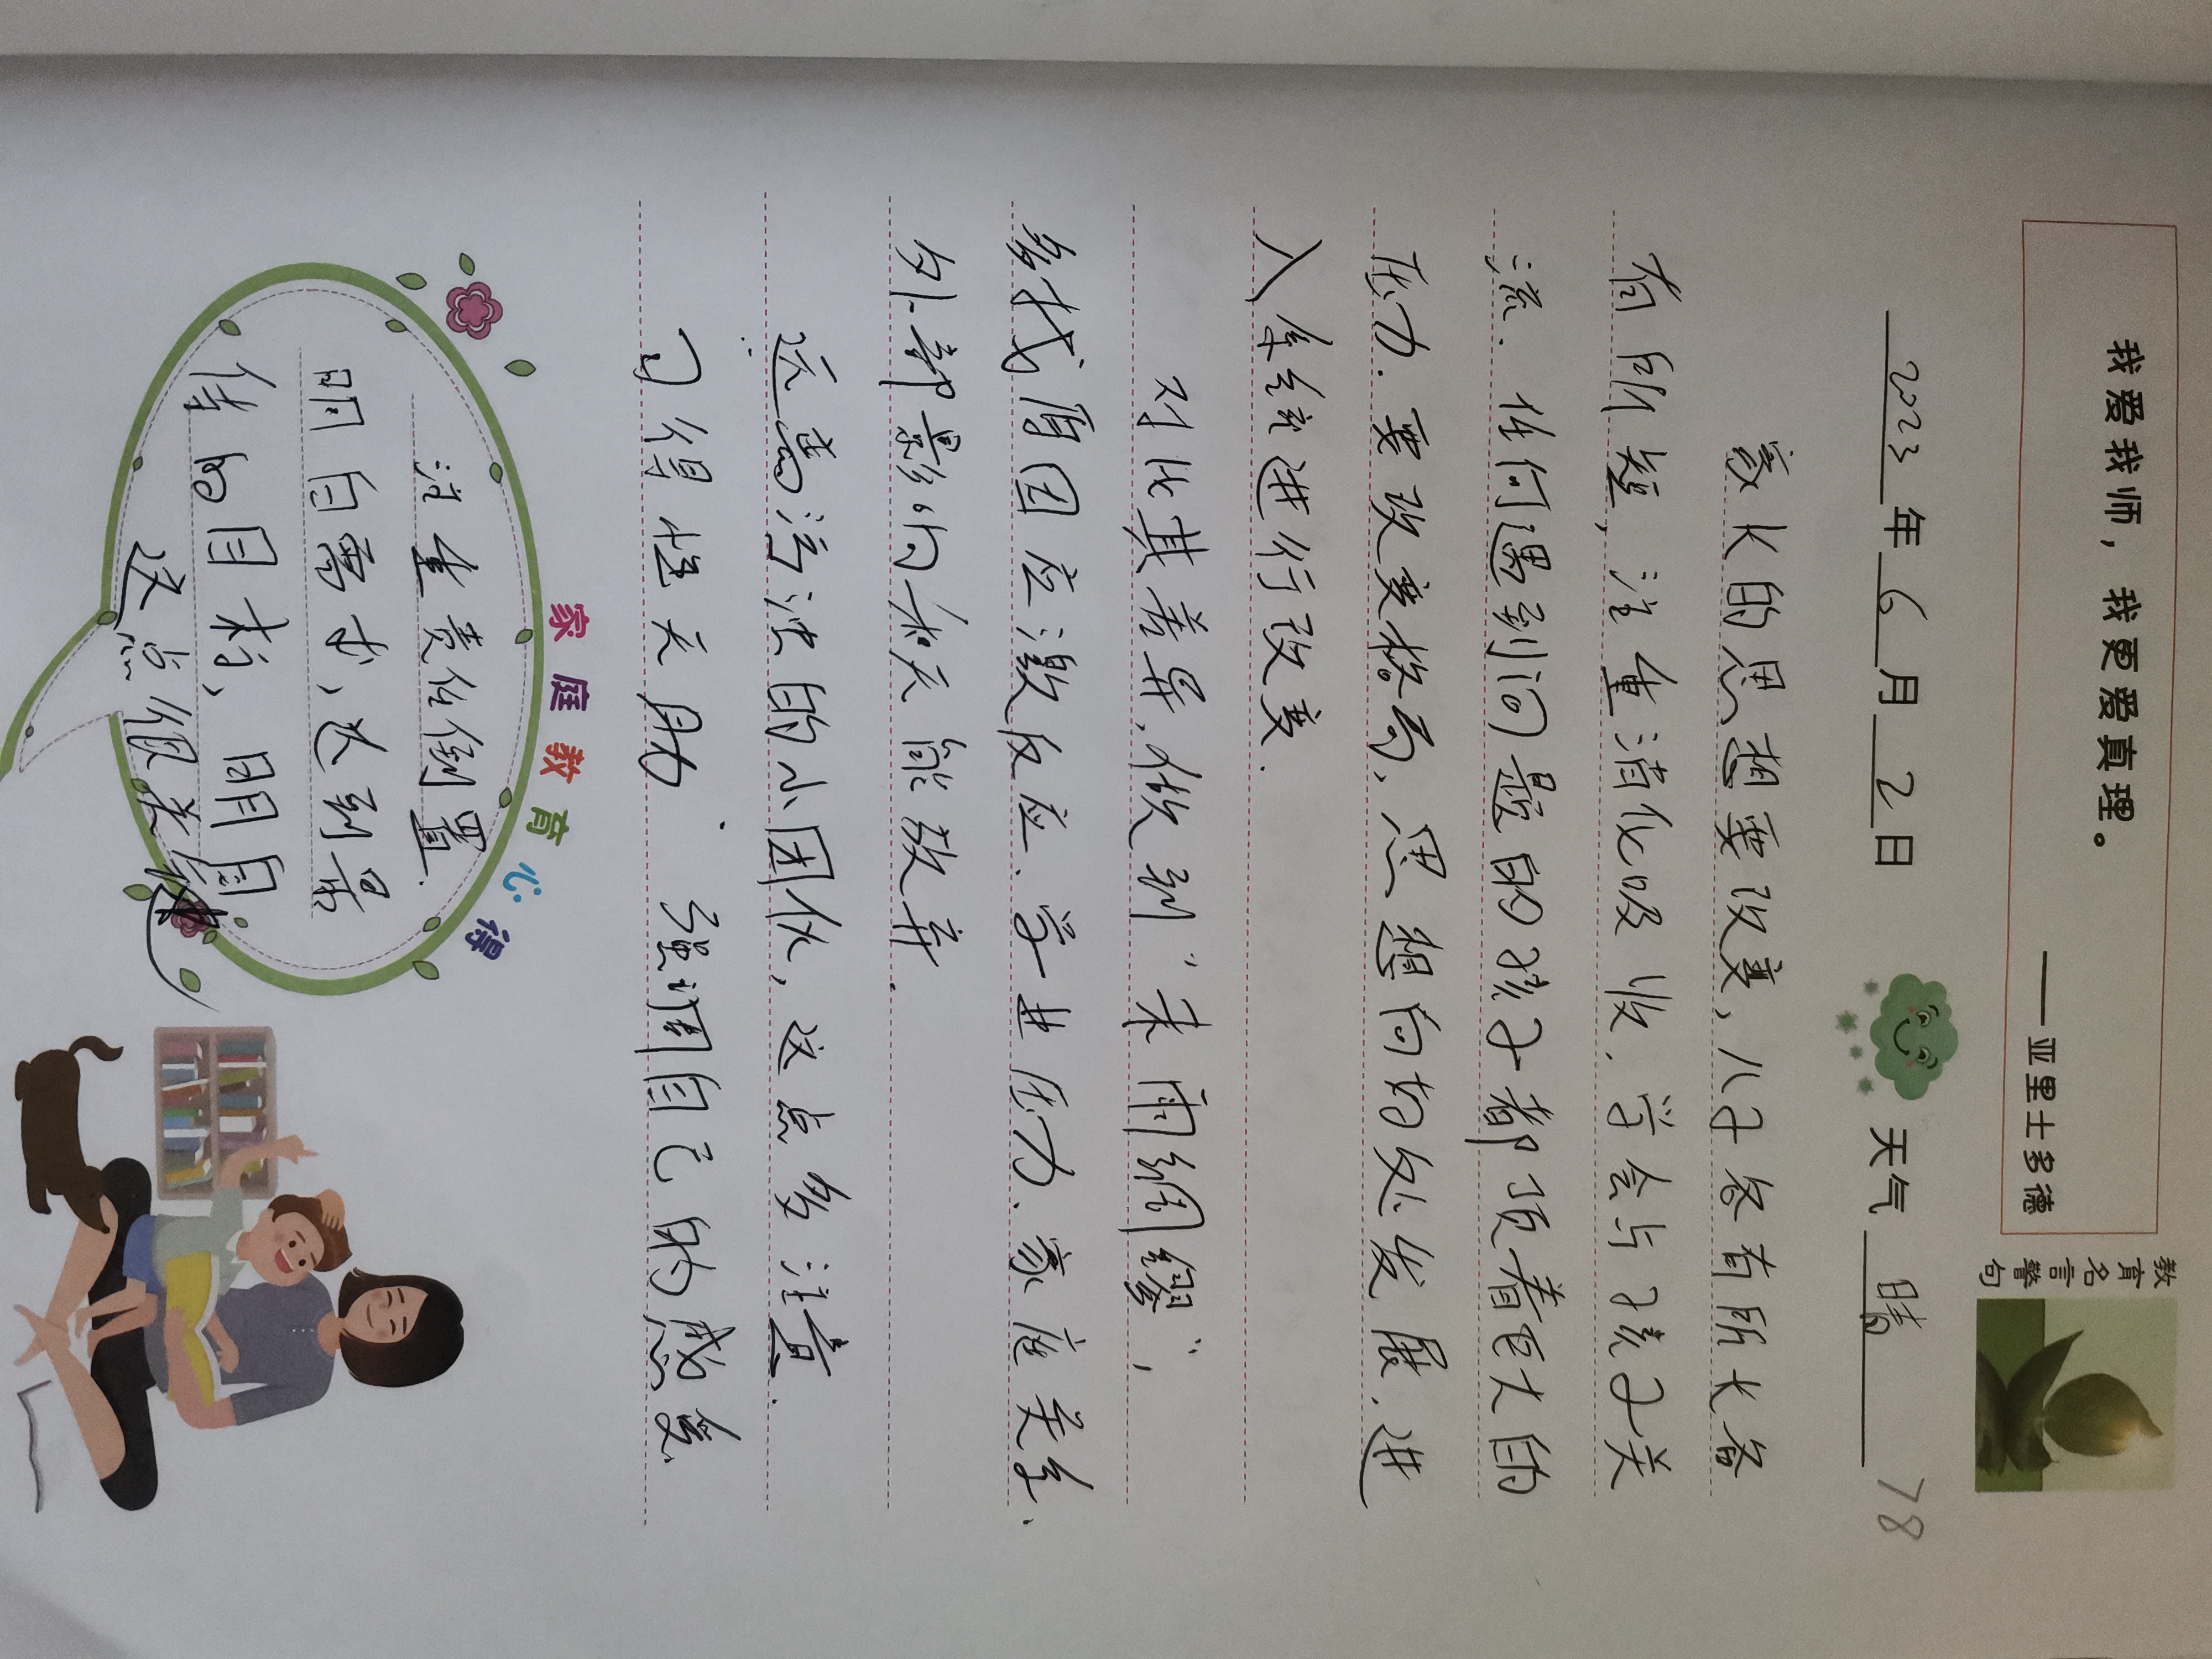 教育名言警句
我爱我师，我更爱真理。
——亚里士多德
2023年6月2日 天气 晴
78
家长的思想要改变，儿子各有所长各
有所短，注重消化吸收．学会与孩子关
流．任何遇到问题的孩子都顶着巨大的
压力．要改变格局，思想向好处发展．进
入系统进行改变．
对比其差异，做到“未雨绸缪”，
多找原因应激反应．学业压力．家庭关系．
外部影响和天能放弃．
远离污浊的小团伙，这点多注意．
习得性无助．强调自己的感受
家庭教育心得
注重责任倒置．
明白需求，达到亲
情的目标，明目
这点很关键